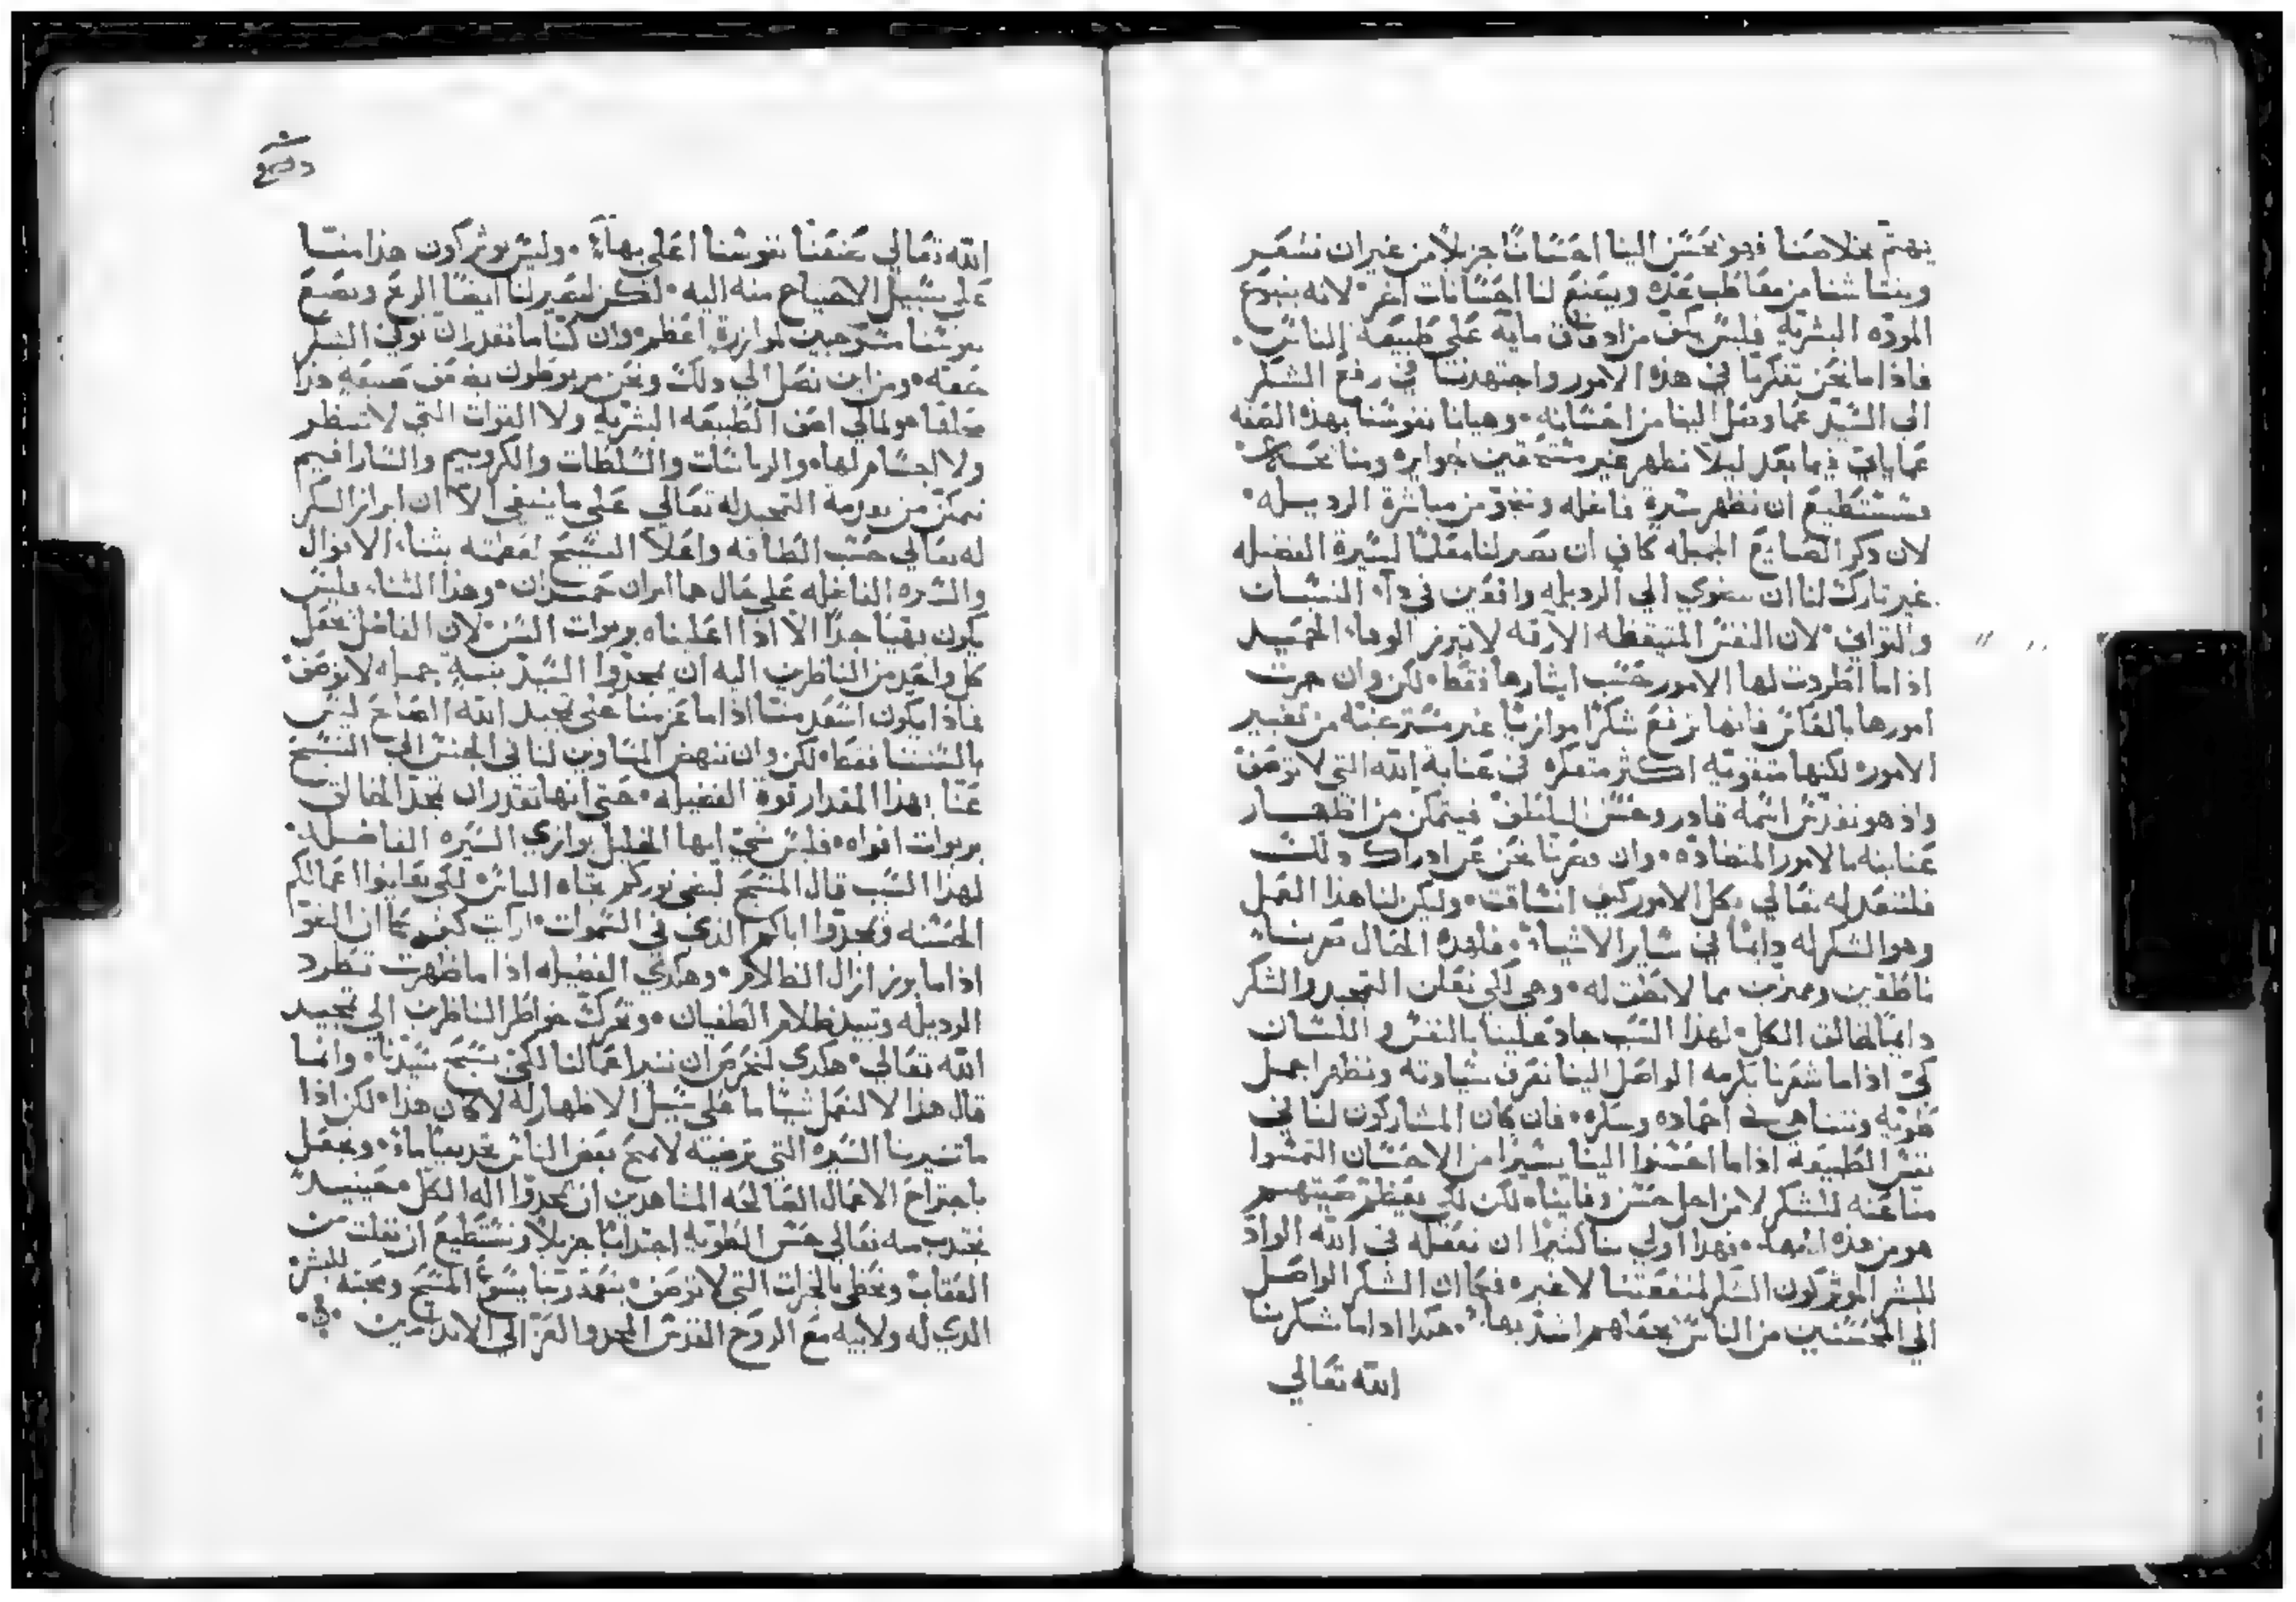 يهتم بخلاصنا فهو يحسن الينا احسانًا جزيلاً من غير ان نشعر
وينتاشنا من معاطب عده ويصنع لنا احسانات اخر لانه ينبوع
الموده البشريه فليس يكف من اد فاق مايه على طبيعة الناس
فاذا ما نحن تفكرنا في هذه الامور واجتهدنا في رفع الشكر
الى السيد عما وصل الينا من احسانه وهيانا نفوسنا بهذه الصفه
عما ياتي فيما بعد ليلا نظهر غير مستحقين لجوايزه
نستطيع ان نظهر سيرة فاضله وننجو من مباشرة الرديله
لان ذكر الصنايع الجميله كاف ان يصير لنا معلمًا لسيرة الفضيله
غير تارك لنا ان نهوي الى الرديله واقعين في داء النسيان
والتواني لان النفس المتيقظه الارقه لا تبرز الوفاء الحميد
اذا ما اطردت لها الامور حسب ايثارها فقط لكن وان جرت
امورها بالعكس فانها ترفع شكرًا موازيًا غير مسترخيه من تغيير
الامور لكنها متقويه اكثر متفكره في عناية الله التي لا توصف
واذ هو تقدس اسمه قادر وحسن التلطف فيتمكن من اظهار
عنايته بالامور المتضادة وان قصرنا نحن عن ادراك ذلك
فلنتعد له تعالي بكل الامور كيف انساقت وليكن لنا هذا العمل
وهو الشكر له دايمًا في ساير الاشياء فلهذه الحال صرنا
ناطقين ومميزين مما لا نطق له وهي لكي نعلن التمجيد والشكر
دايمًا لخالق الكل لهذا السبب جاد علينا بالنفس واللسان
كي اذا ما شعرنا بكرمه الواصل الينا نعرف سيادته ونظهر اجمل
طويه ونتناهى في احماده وشكره فان كان المشاركون لنا في
نفس الطبيعة اذا ما احسنوا الينا يسيرًا من الاحسان التمسوا
منا عنه للشكر لا من اجل حسن وفاينا لكن لكي يعظم صيتهم
هو من هذه الجهه فهذا اولي بنا كثيرًا ان نفعله في الله الواد
للبشر الموثر كون الشكر لمنفعتنا لا غير فكما ان الشكر الواصل
الي المحسنين من الناس يجعلهم اشد بهاءً هكذا اذا ما شكرنا
الله تعالي
الله تعالي نحن نفوسنا اعلى بهاءً وليس يوثر كون هذا منا
على سبيل الاحتياج منه اليه لكن ليصير لنا ايضًا الربح ويصنع
نفوسنا مستوجبين لموازرة اعظم وان كنا ما نقدر ان نوفي الشكر
حقه ومن اين نصل الى ذلك ونحن مربوطون بضعف طبيعة هذا
مبلغها ومالي اصف الطبيعه البشريه ولا القوات التي لا تنظر
ولا اجسام لها والرياسات والسلطات والكروبيم والسارافيم
تتمكن من تقدمة التمجيد له تعالي على ما ينبغي الا ان ابراز الشكر
له تعالي حسب الطاقه واعلان التسبيح لعظمته بثناء الاقوال
والسيره الفاضله على حال هما امران وهذا الثناء فليس
يكون بهيًا جدًا الا اذا اعلناه بربوات السن لان الفاضل يجعل
كل واحد من الناظرين اليه ان يمجدوا السيد بنية جميله لا توصف
فماذا يكون اسعد منا اذا ما عزمنا على تمجيد الله الصالح ليس
بالسنتنا فقط لكن وان ننهض المساوين لنا في الجنس الى التسبيح
عنا بهذا المقدار قوة الفضيله حتى انها تقدر ان تمجد الخالق
بربوات افواه فليس شي ايها الخليل يوازي السيره الفاضله
لهذا السبب قال المسيح ليضي نوركم تجاه الناس لكي يعاينوا اعمالكم
الحسنه ويمجدوا اباكم الذي في السموات ارايت كيف كما ان الضو
اذا ما برز ازال الظلام وهكذي الفضيله اذا ما ظهرت تطرد
الرديله وتبيد ظلام الطغيان وتحرك خواطر الناظرين الى تمجيد
الله تعالي هكذي لنحرص ان تنير اعمالنا لكي يسبح سيدنا وانما
قال هذا لا لنعمل شيًا ما على سبيل الاظهار له لا كان هذا لكن اذا
ما تدبرنا السيره التي ترضيه لا نمنح بعض الناس تجديفًا ما ونجعل
باجتراح الاعمال الصالحه المشاهدين ان يمجدوا اله الكل فحينيذ
نجتذب منه تعالي حسن الطويه اجتذابًا جزيلاً ونستطيع ان نفلت من
العقاب ونحظى بالخيرات التي لا توصف بنعمة ربنا يسوع المسيح ومحبته للبشر
الذي له ولابيه مع الروح القدس المجد والعز الي الابد امين